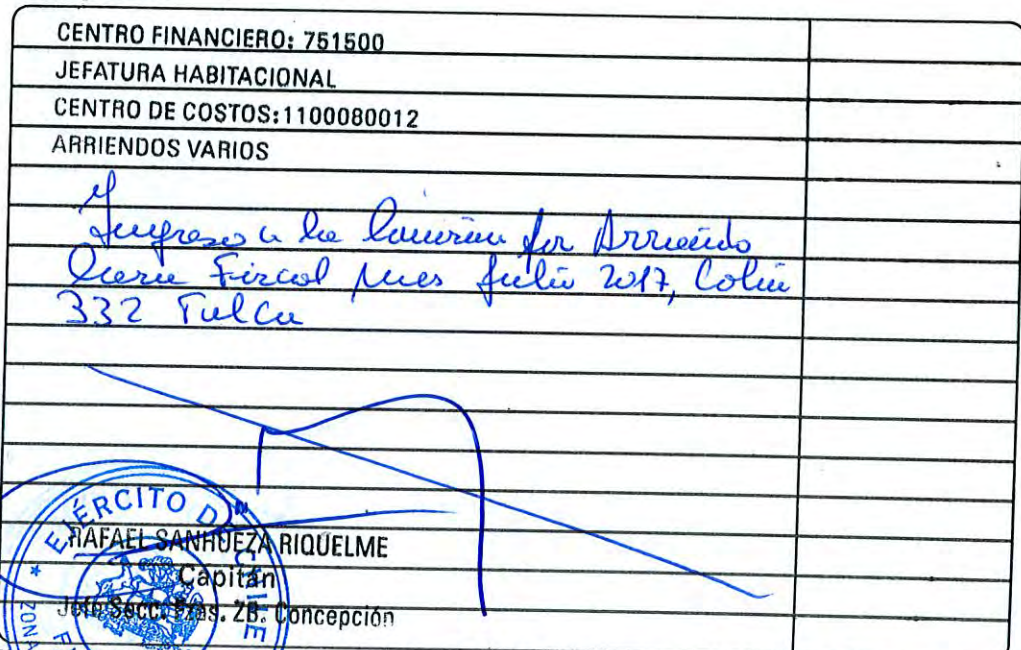 CENTRO FINANCIERO: 751500
JEFATURA HABITACIONAL
CENTRO DE COSTOS:1100080012
ARRIENDOS VARIOS
Ingreso a la por Arriendo
Casa Fiscal mes Julio 2017, Colin
332 Talca
EJÉRCITO DE CHILE
RAFAEL SANHUEZA RIQUELME
Capitán
Jefe Secc. Fzas. ZB. Concepción
ZONA